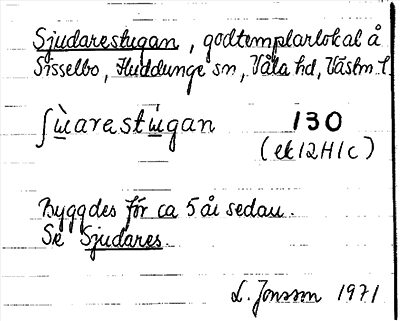 Sjudarestugan, godtemplarlokal å
Sisselbo, Huddunge sn, Våla hd, Västm. l.
ʃùarestúgan 130
(ek 12H1c)
Byggdes för ca 5 år sedan.
Se Sjudares.
L. Jonsson 1971